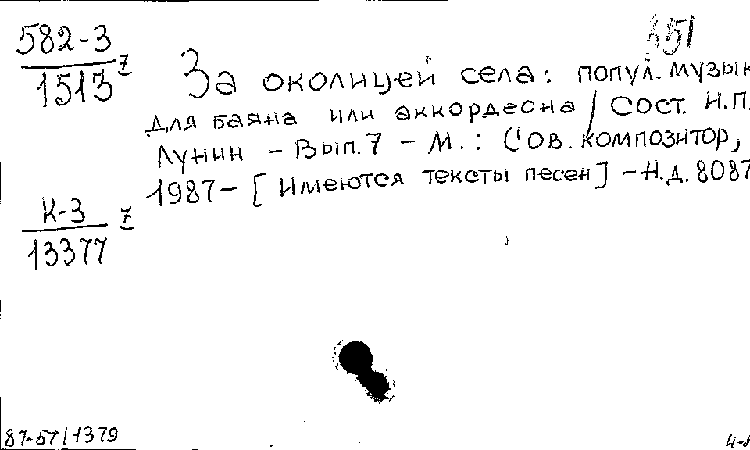 351
582-3
1513 7
За околицей села: попул. музык
для баяна или аккордеона / Сост. Н.П.
Лунин - Вып. 7 - М.: Сов. композитор,
1987 - [Имеются тексты песен] - Н.д. 8087
К-3
13377 7
87-57/1379